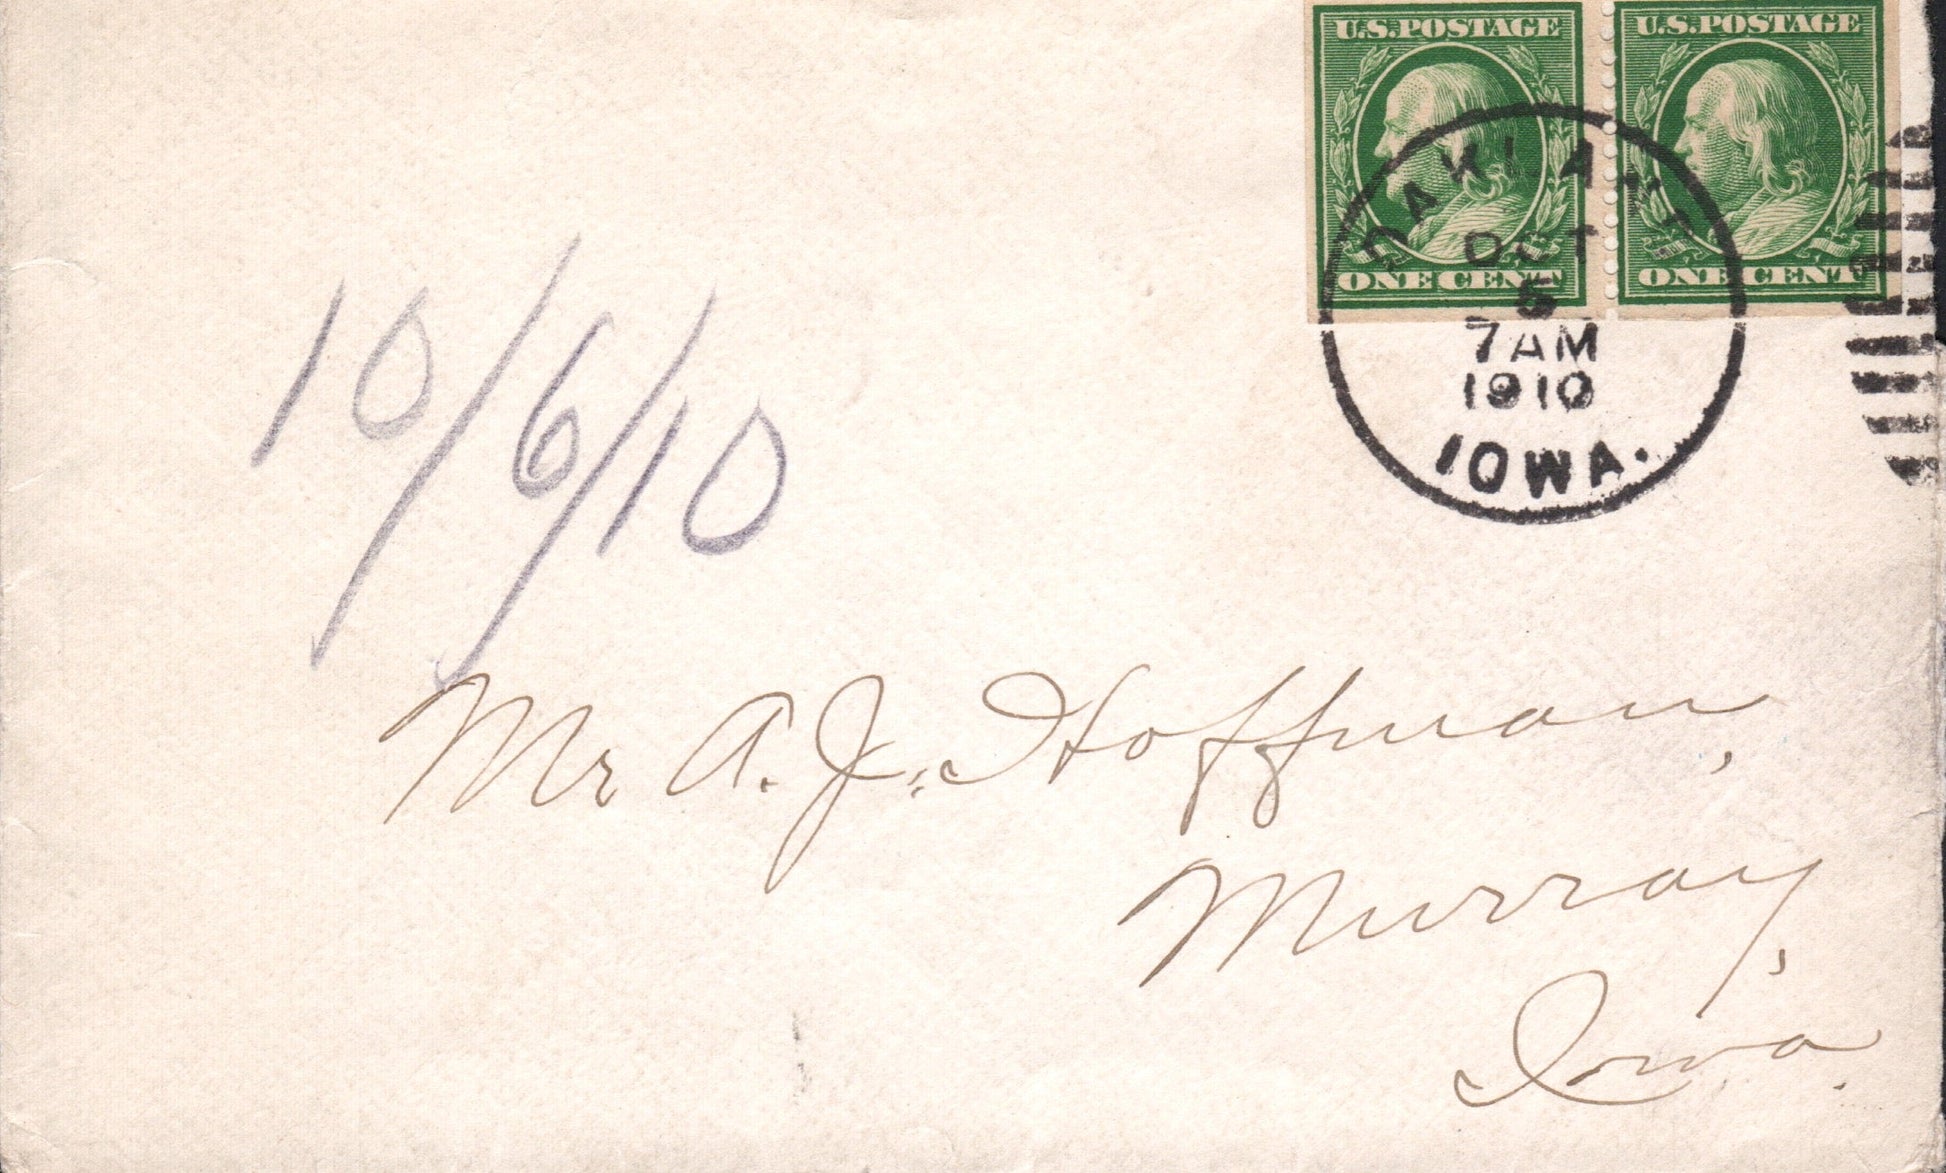 U.S. POSTAGE U.S. POSTAGE
ONE CENT ONE CENT
OAKLAND
OCT
5
7 AM
1910
IOWA.
10/6/10
Mr A. J. Hoffman,
Murray,
Iowa.